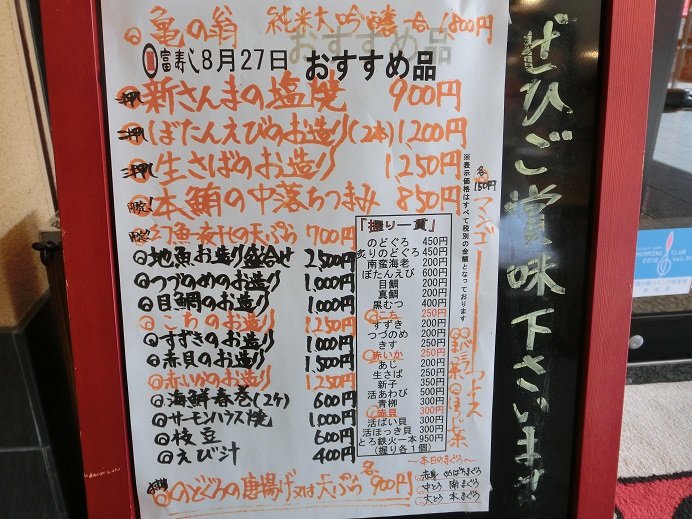 亀の翁 純米大吟醸一合 1,800円
富寿し 8月27日 おすすめ品
一押し 新さんまの塩焼 900円
二押し ぼたんえびのお造り(2本) 1,200円
三押し 生さばのお造り 1,250円
本鮪の中落ちつまみ 850円
幻魚夜干の天ぷら 700円
◎地魚お造り盛合せ 2,500円
◎つづのめのお造り 1,000円
◎目鯛のお造り 1,000円
◎こちのお造り 1,250円
◎すずきのお造り 1,000円
◎赤貝のお造り 1,500円
◎赤いかのお造り 1,250円
◎海鮮春巻(2ケ) 600円
◎サーモンハラス焼 1,000円
◎枝豆 600円
◎えび汁 400円
のどぐろの唐揚げ又は天ぷら 各900円
「握り一貫」
のどぐろ 450円
炙りのどぐろ 450円
南蛮海老 200円
ぼたんえび 600円
目鯛 200円
真鯛 200円
黒むつ 400円
◎こち 250円
すずき 200円
つづのめ 200円
きす 250円
◎赤いか 250円
あじ 200円
生さば 250円
新子 350円
活あわび 500円
青柳 300円
◎赤貝 300円
活ばい貝 300円
活ほっき貝 300円
とろ鉄火一本 950円
(握り各1個)
※表示価格はすべて税別の金額となっております
各150円
マンゴー
アイス
◎バニラ
◎抹茶
◎ほうじ茶
～本日のまぐろ～
赤身 めばちまぐろ
中とろ 南まぐろ
大とろ 本まぐろ
ぜひご賞味下さいませ